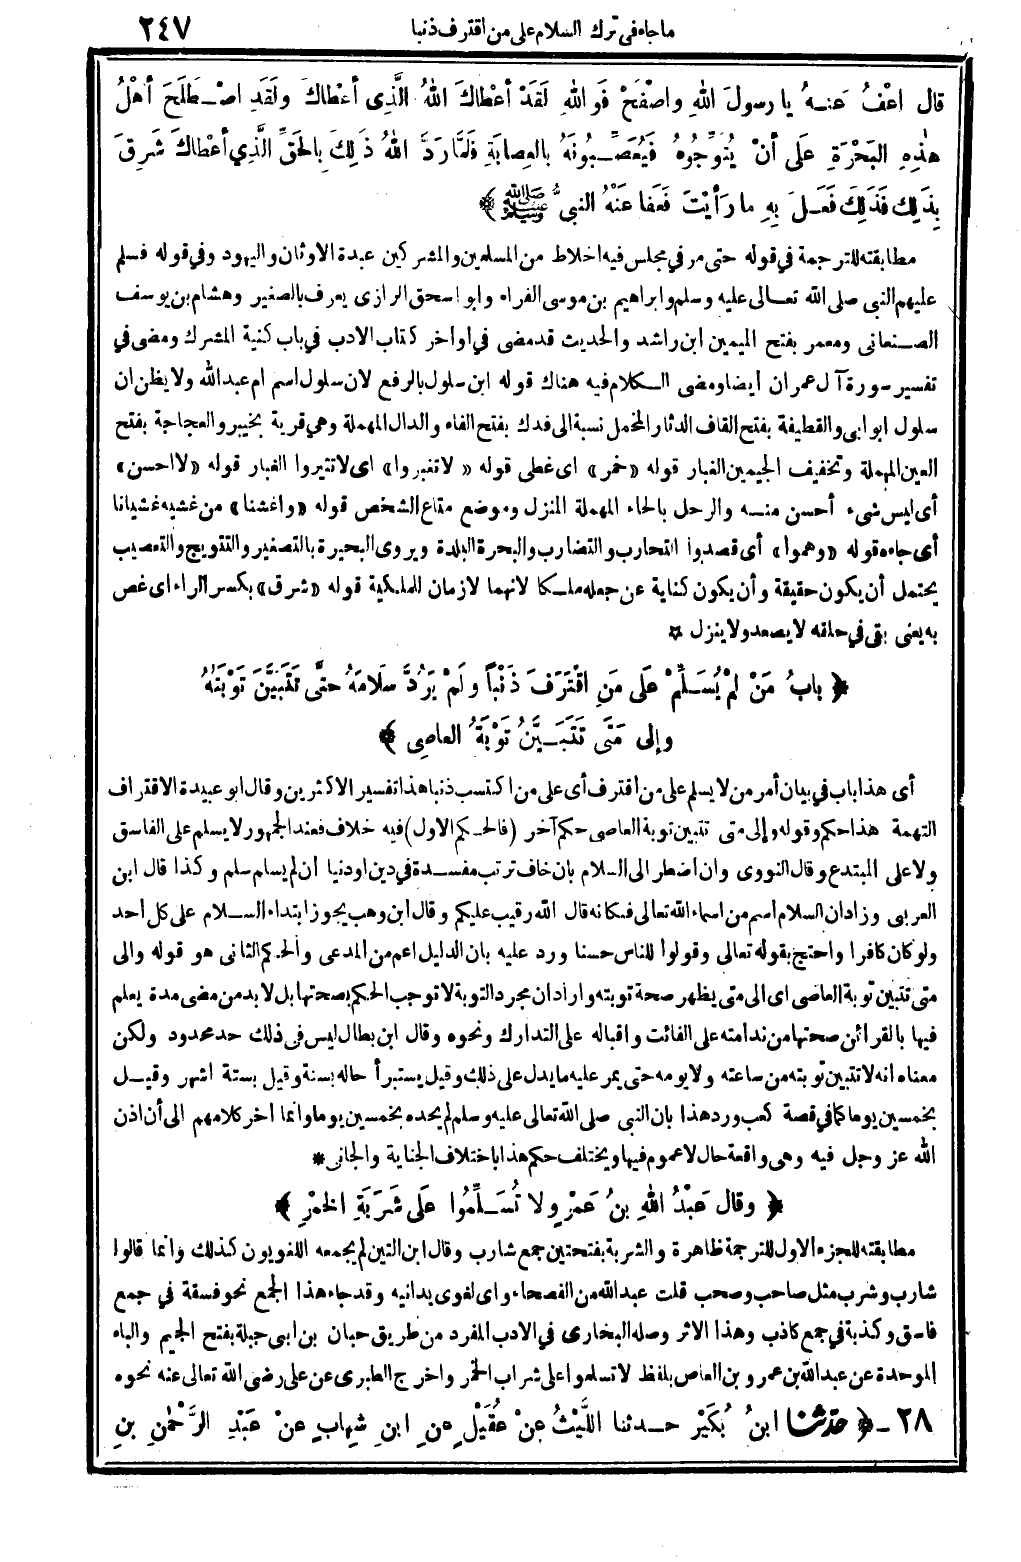 ما جاء في ترك السلام على من اقترف ذنبا ٢٤٧
قال اعْفُ عَنهُ يا رسولَ اللهِ واصْفَحْ فَواللهِ لَقَدْ أعْطاكَ اللهُ الَّذِي أعْطاكَ ولَقَدِ اصْطَلَحَ أهْلُ
هٰذِهِ البَحْرَةِ عَلَى أنْ يُتَوِّجُوهُ فَيُعَصِّبُونَهُ بالعِصابَةِ فَلَمَّا رَدَّ اللهُ ذَلِكَ بِالحَقِّ الَّذِي أعْطاكَ شَرِقَ
بِذَلِكَ فَذَلِكَ فَعَلَ بِهِ ما رَأيْتَ فَعَفا عَنْهُ النبيُّ ﷺ ﴾
مطابقته للترجمة في قوله حتى مر في مجلس فيه اخلاط من المسلمين والمشركين عبدة الاوثان واليهود وفي قوله فسلم
عليهم النبي صلى الله تعالى عليه وسلم وابراهيم بن موسى الفراء وابو اسحق الرازى يعرف بالصغير وهشام بن يوسف
الصنعانى ومعمر بفتح الميمين ابن راشد والحديث قد مضى في اواخر كتاب الادب في باب كنية المشرك ومضى في
تفسير سورة آل عمران ايضا ومضى الكلام فيه هناك قوله ابن سلول بالرفع لان سلول اسم ام عبد الله ولا يظن ان
سلول ابو ابى والقطيفة بفتح القاف الدثار المخمل نسبة الى فدك بفتح الفاء والدال المهملة وهي قرية بخيبر والعجاجة بفتح
العين المهملة وتخفيف الجيمين الغبار قوله «خمر» اى غطى قوله « لا تغبروا» اى لا تثيروا الغبار قوله «لا احسن»
أى ليس شىء أحسن منه والرحل بالحاء المهملة المنزل وموضع متاع الشخص قوله «واغشنا» من غشيه غشيانا
أى جاءه قوله «وهموا» أى قصدوا التحارب والتضارب والبحرة البلدة ويروى البحيرة بالتصغير والتتويج والتعصيب
يحتمل أن يكون حقيقة وأن يكون كناية عن جعله ملكا لانهما لازمان للملكية قوله «شرق» بكسر الراء اى غص
به يعنى بقى في حلقه لا يصعد ولا ينزل ✡
﴿ بابُ مَنْ لمْ يُسَلِّمْ عَلَى مَنِ اقْتَرَفَ ذَنْبًا ولَمْ يَرُدَّ سَلامَهُ حتَّى تَتَبَيَّنَ تَوْبَتُهُ
وإلى مَتَى تَتَبَيَّنُ تَوْبَةُ العاصِى ﴾
أى هذا باب في بيان أمر من لا يسلم على من اقترف أى على من اكتسب ذنبا هذا تفسير الاكثرين وقال ابو عبيدة الاقتراف
التهمة هذا حكم وقوله وإلى متى تتبين توبة العاصى حكم آخر (فالحكم الاول) فيه خلاف فعند الجمهور لا يسلم على الفاسق
ولا على المبتدع وقال النووى وان اضطر الى السلام بان خاف ترتب مفسدة في دين او دنيا ان لم يسلم سلم وكذا قال ابن
العربى وزاد ان السلام اسم من اسماء الله تعالى فكانه قال الله رقيب عليكم وقال ابن وهب يجوز ابتداء السلام على كل احد
ولو كان كافرا واحتج بقوله تعالى وقولوا للناس حسنا ورد عليه بان الدليل اعم من المدعى والحكم الثانى هو قوله والى
متى تتبين توبة العاصى اى الى متى يظهر صحة توبته واراد ان مجرد التوبة لا توجب الحكم بصحتها بل لا بد من مضى مدة يعلم
فيها بالقرائن صحتها من ندامته على الفائت واقباله على التدارك ونحوه وقال ابن بطال ليس فى ذلك حد محدود ولكن
معناه انه لا تتبين توبته من ساعته ولا يومه حتى يمر عليه ما يدل على ذلك وقيل يستبرأ حاله بسنة وقيل بستة اشهر وقيل
بخمسين يوما كما في قصة كعب ورد هذا بان النبي صلى الله تعالى عليه وسلم لم يحده بخمسين يوما وانما اخر كلامهم الى أن اذن
الله عز وجل فيه وهى واقعة حال لا عموم فيها ويختلف حكم هذا باختلاف الجناية والجانى *
﴿ وقال عَبْدُ اللهِ بنُ عَمْرٍو لا تُسَلِّمُوا عَلَى شَرَبَةِ الخَمْرِ ﴾
مطابقته للجزء الاول للترجمة ظاهرة والشربة بفتحتين جمع شارب وقال ابن التين لم يجمعه اللغويون كذلك وانما قالوا
شارب وشرب مثل صاحب وصحب قلت عبد الله من الفصحاء واى لغوى يدانيه وقد جاء هذا الجمع نحو فسقة في جمع
فاسق وكذبة في جمع كاذب وهذا الاثر وصله البخارى في الادب المفرد من طريق حبان بن ابى جبلة بفتح الجيم والباء
الموحدة عن عبد الله بن عمرو بن العاص بلفظ لا تسلموا على شراب الخمر واخرج الطبرى عن على رضى الله تعالى عنه نحوه
٢٨ - ﴿ حدثنا ابنُ بُكَيْرٍ حدثنا اللَّيْثُ عنْ عُقَيْلٍ عنِ ابنِ شِهابٍ عنْ عَبْدِ الرَّحْمٰنِ بنِ